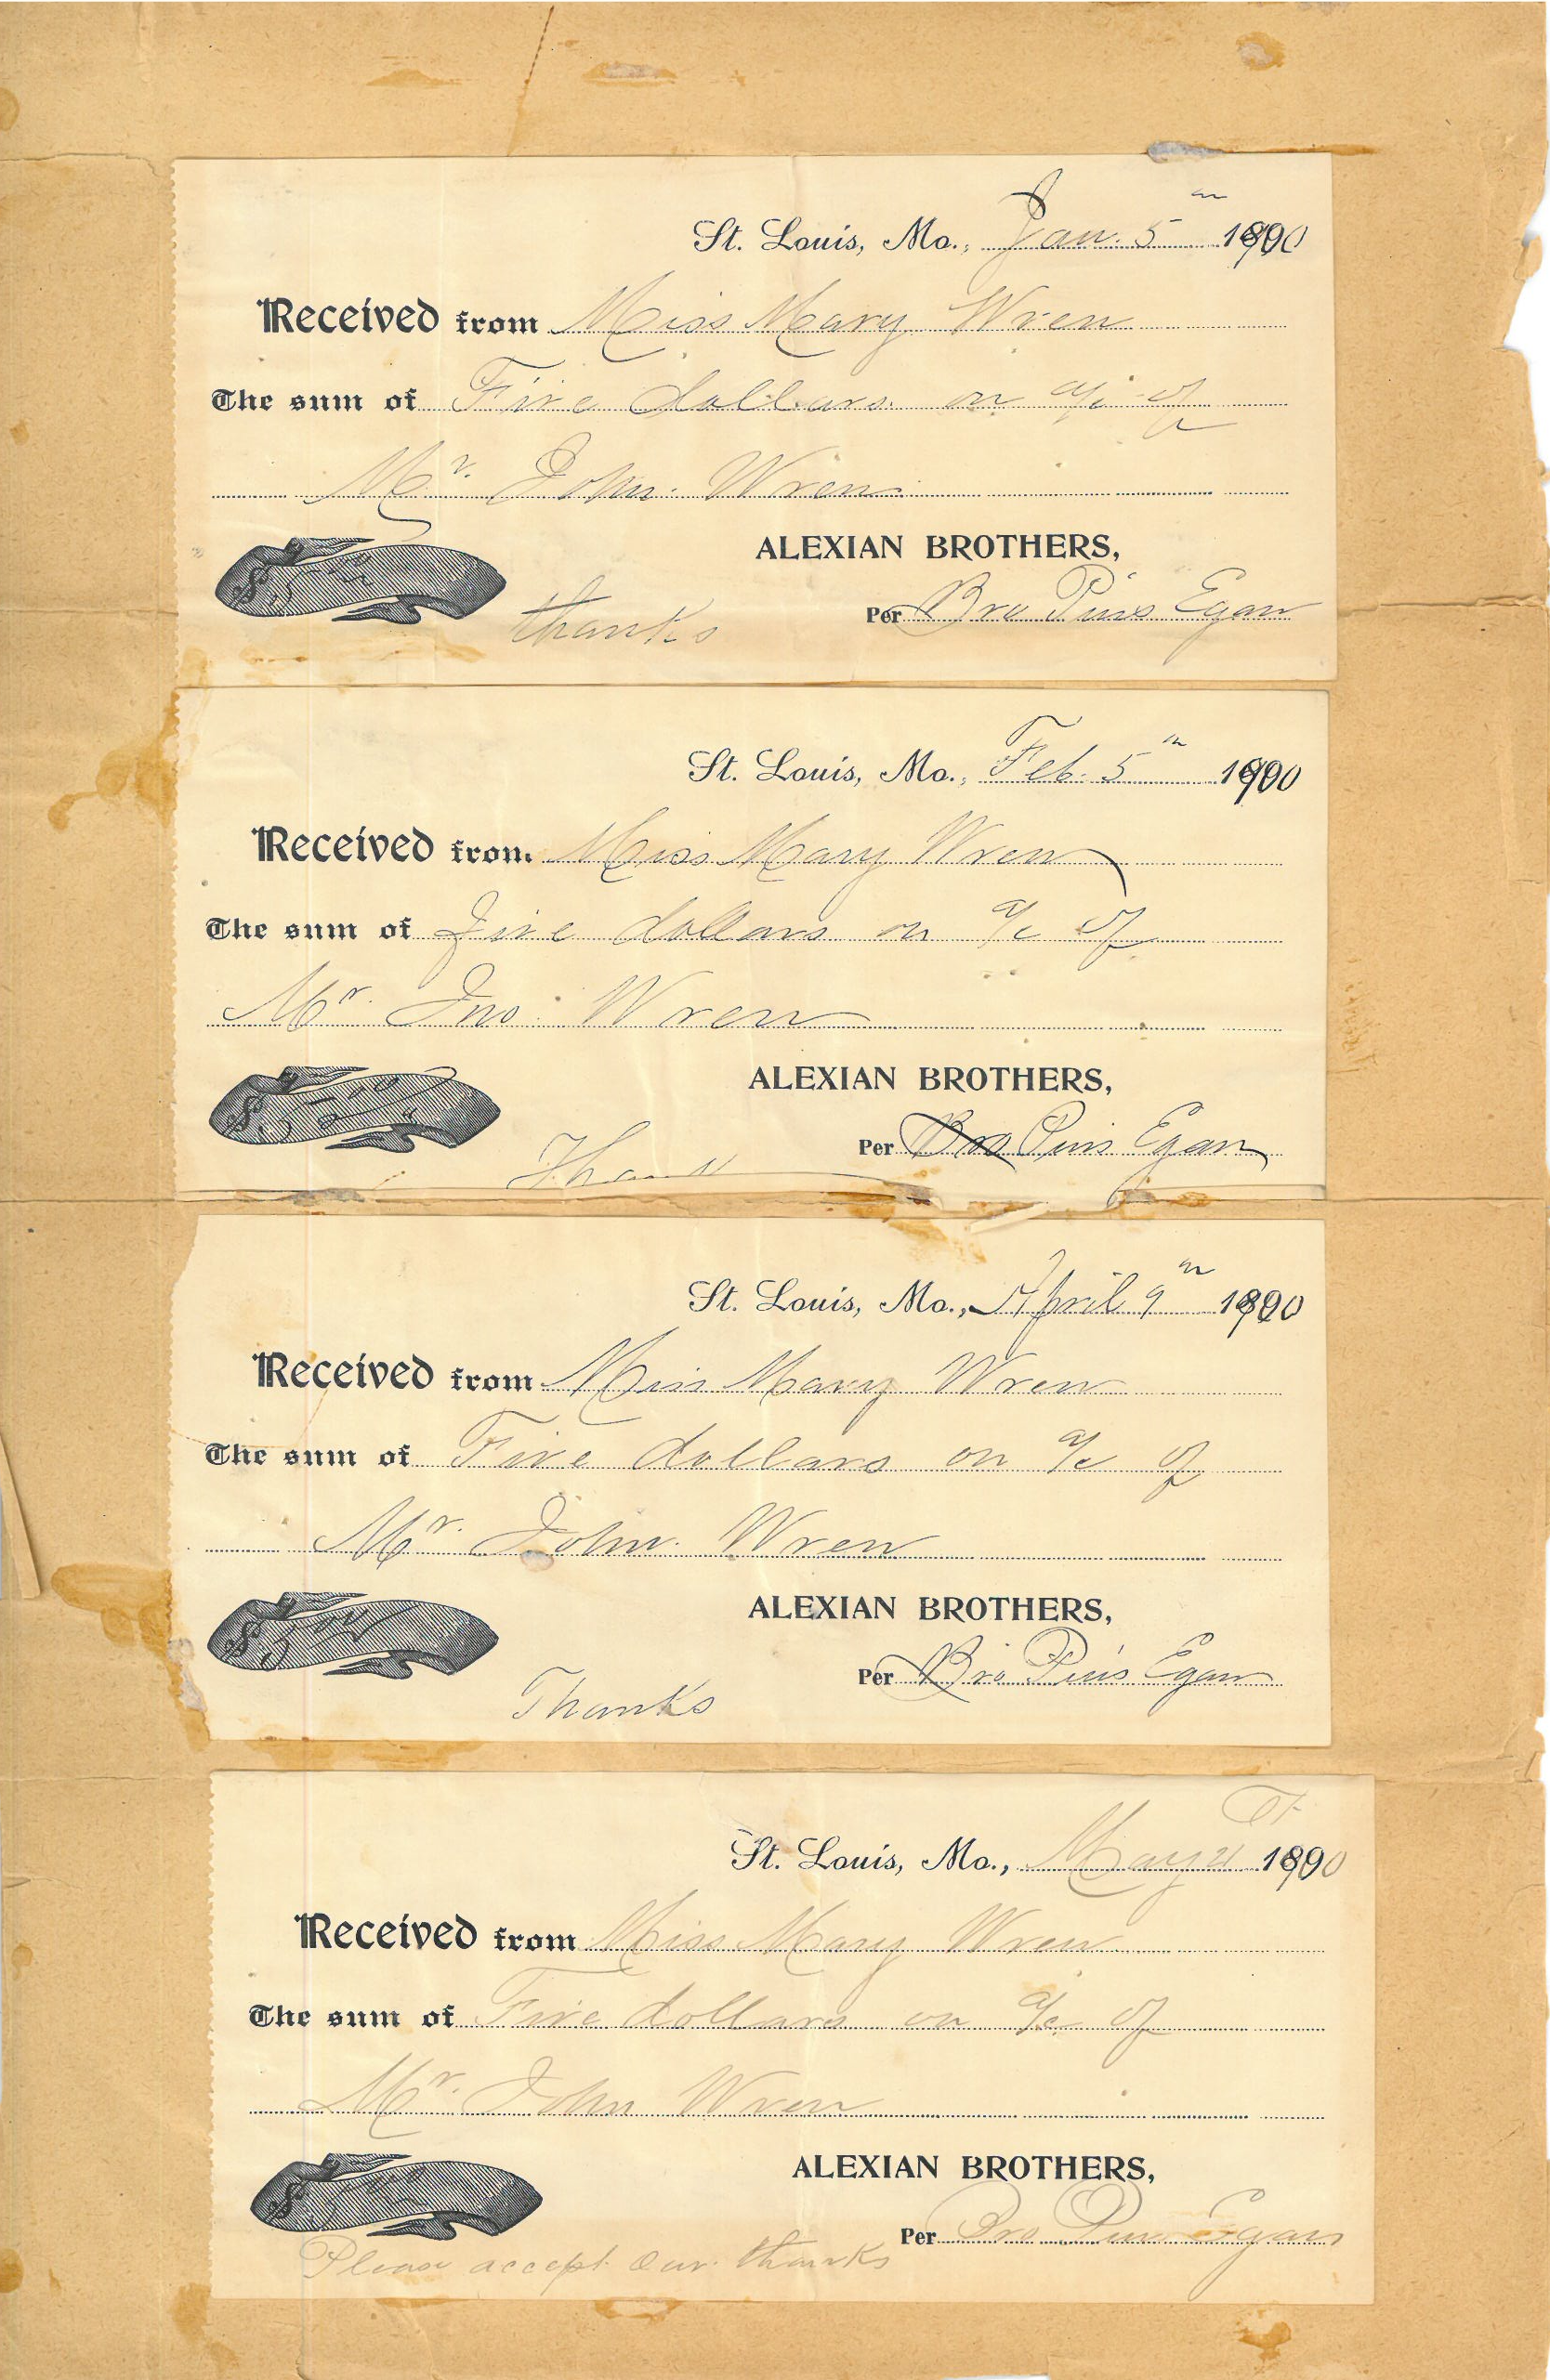 St. Louis, Mo., Jan. 5th 1900
Received from Miss Mary Wren
The sum of Five dollars on a/c of
Mr. John Wren
ALEXIAN BROTHERS,
$5.00
Per Bro Pius Egan
thanks
St. Louis, Mo., Feb. 5th 1900
Received from Miss Mary Wren
The sum of five dollars on a/c of
Mr. Jno. Wren
ALEXIAN BROTHERS,
$5.00
Per Bro Pius Egan
Thanks
St. Louis, Mo., April 9th 1900
Received from Miss Mary Wren
The sum of Five dollars on a/c of
Mr. John Wren
ALEXIAN BROTHERS,
$5.00
Per Bro Pius Egan
Thanks
St. Louis, Mo., May 1900
Received from Miss Mary Wren
The sum of Five dollars on a/c of
Mr. John Wren
ALEXIAN BROTHERS,
$5.00
Per Bro Pius Egan
Please accept our thanks